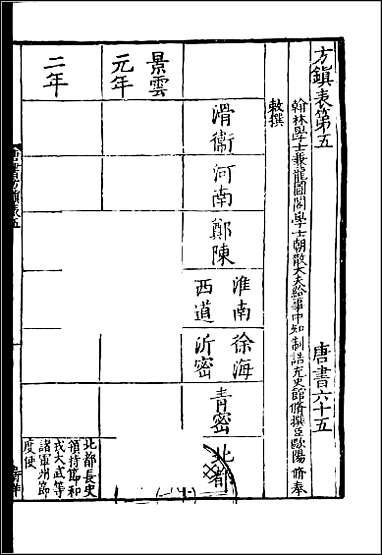 方鎮表第五　唐書六十五
翰林學士兼龍圖閣學士朝散大夫給事中知制誥充史館脩撰臣歐陽脩奉
敕撰
滑衛
河南
鄭陳
淮南
西道
徐海
沂密
青密
北都
景雲
元年
二年
北都長史
領持節和
戎大武等
諸軍州節
度使